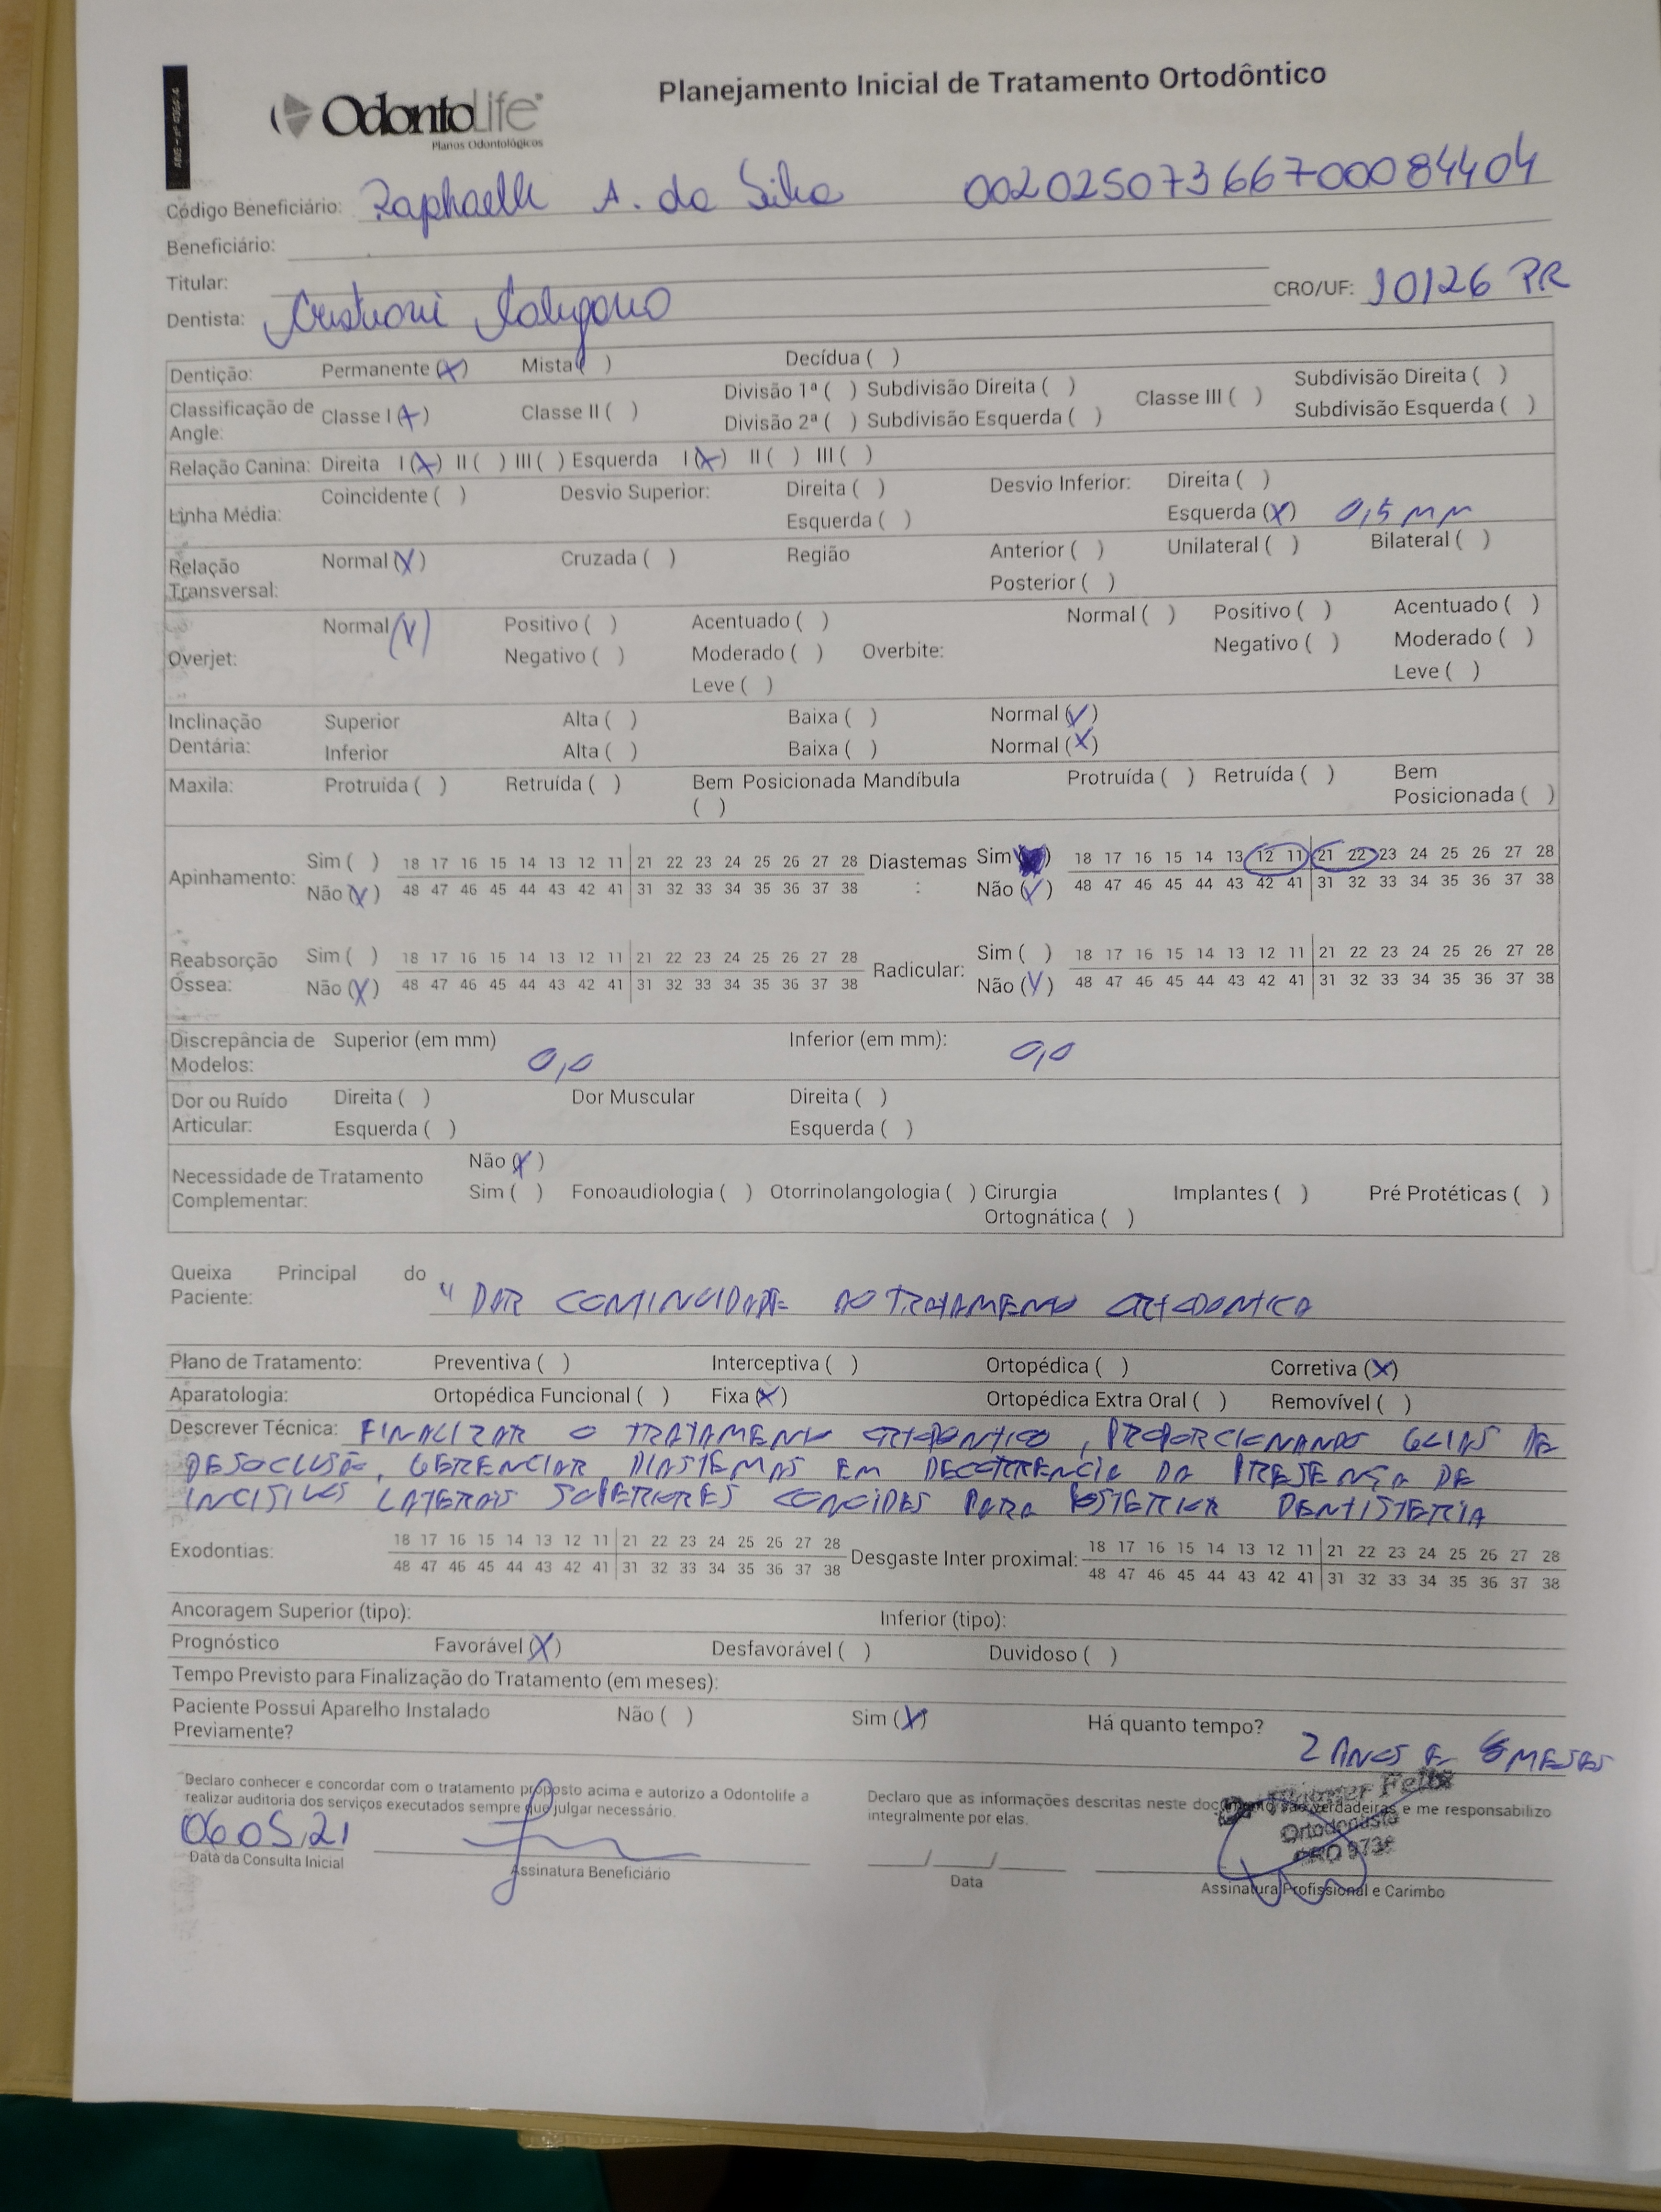 Planejamento Inicial de Tratamento Ortodôntico
OdontoLife
Planos Odontológicos
Código Beneficiário: Raphaelle A. da Silva 00202507366700084404
Beneficiário:
Titular:
CRO/UF: 10126 PR
Dentista:
Dentição: Permanente (X) Mista ( ) Decídua ( )
Classificação de Angle: Classe I (X) Classe II ( ) Divisão 1ª ( ) Subdivisão Direita ( ) Classe III ( ) Subdivisão Direita ( )
Divisão 2ª ( ) Subdivisão Esquerda ( ) Subdivisão Esquerda ( )
Relação Canina: Direita I (X) II ( ) III ( ) Esquerda I (X) II ( ) III ( )
Linha Média: Coincidente ( ) Desvio Superior: Direita ( ) Desvio Inferior: Direita ( )
Esquerda ( ) Esquerda (X) 0,5 MM
Relação Transversal: Normal (X) Cruzada ( ) Região Anterior ( ) Unilateral ( ) Bilateral ( )
Posterior ( )
Overjet: Normal (X) Positivo ( ) Acentuado ( ) Overbite: Normal ( ) Positivo ( ) Acentuado ( )
Negativo ( ) Moderado ( ) Negativo ( ) Moderado ( )
Leve ( ) Leve ( )
Inclinação Dentária: Superior Alta ( ) Baixa ( ) Normal (X)
Inferior Alta ( ) Baixa ( ) Normal (X)
Maxila: Protruída ( ) Retruída ( ) Bem Posicionada ( ) Mandíbula Protruída ( ) Retruída ( ) Bem Posicionada ( )
Apinhamento: Sim ( ) 18 17 16 15 14 13 12 11 21 22 23 24 25 26 27 28 Diastemas : Sim ( ) 18 17 16 15 14 13 12 11 21 22 23 24 25 26 27 28
Não (X) 48 47 46 45 44 43 42 41 31 32 33 34 35 36 37 38 Não (X) 48 47 46 45 44 43 42 41 31 32 33 34 35 36 37 38
Reabsorção Óssea: Sim ( ) 18 17 16 15 14 13 12 11 21 22 23 24 25 26 27 28 Radicular: Sim ( ) 18 17 16 15 14 13 12 11 21 22 23 24 25 26 27 28
Não (X) 48 47 46 45 44 43 42 41 31 32 33 34 35 36 37 38 Não (X) 48 47 46 45 44 43 42 41 31 32 33 34 35 36 37 38
Discrepância de Modelos: Superior (em mm) 0,0 Inferior (em mm): 0,0
Dor ou Ruído Articular: Direita ( ) Dor Muscular Direita ( )
Esquerda ( ) Esquerda ( )
Necessidade de Tratamento Complementar: Não (X)
Sim ( ) Fonoaudiologia ( ) Otorrinolangologia ( ) Cirurgia Ortognática ( ) Implantes ( ) Pré Protéticas ( )
Queixa Principal do Paciente: "DAR CONTINUIDADE AO TRATAMENTO ORTODONTICO
Plano de Tratamento: Preventiva ( ) Interceptiva ( ) Ortopédica ( ) Corretiva (X)
Aparatologia: Ortopédica Funcional ( ) Fixa (X) Ortopédica Extra Oral ( ) Removível ( )
Descrever Técnica: FINALIZAR O TRATAMENTO ORTODONTICO, PROPORCIONANDO GUIAS DE
DESOCLUSÃO, GERENCIAR DIASTEMAS EM DECORRENCIA DA PRESENÇA DE
INCISIVOS LATERAIS SUPERIORES CONOIDES PARA POSTERIOR DENTISTERIA
Exodontias: 18 17 16 15 14 13 12 11 21 22 23 24 25 26 27 28 Desgaste Inter proximal: 18 17 16 15 14 13 12 11 21 22 23 24 25 26 27 28
48 47 46 45 44 43 42 41 31 32 33 34 35 36 37 38 48 47 46 45 44 43 42 41 31 32 33 34 35 36 37 38
Ancoragem Superior (tipo): Inferior (tipo):
Prognóstico Favorável (X) Desfavorável ( ) Duvidoso ( )
Tempo Previsto para Finalização do Tratamento (em meses):
Paciente Possui Aparelho Instalado Previamente? Não ( ) Sim (X) Há quanto tempo? 2 ANOS E MESES
Declaro conhecer e concordar com o tratamento proposto acima e autorizo a Odontolife a
realizar auditoria dos serviços executados sempre que julgar necessário.
Declaro que as informações descritas neste documento são verdadeiras e me responsabilizo
integralmente por elas.
Felix
Ortodontista
CRO
06 05 21
Data da Consulta Inicial
Assinatura Beneficiário
Data
Assinatura Profissional e Carimbo